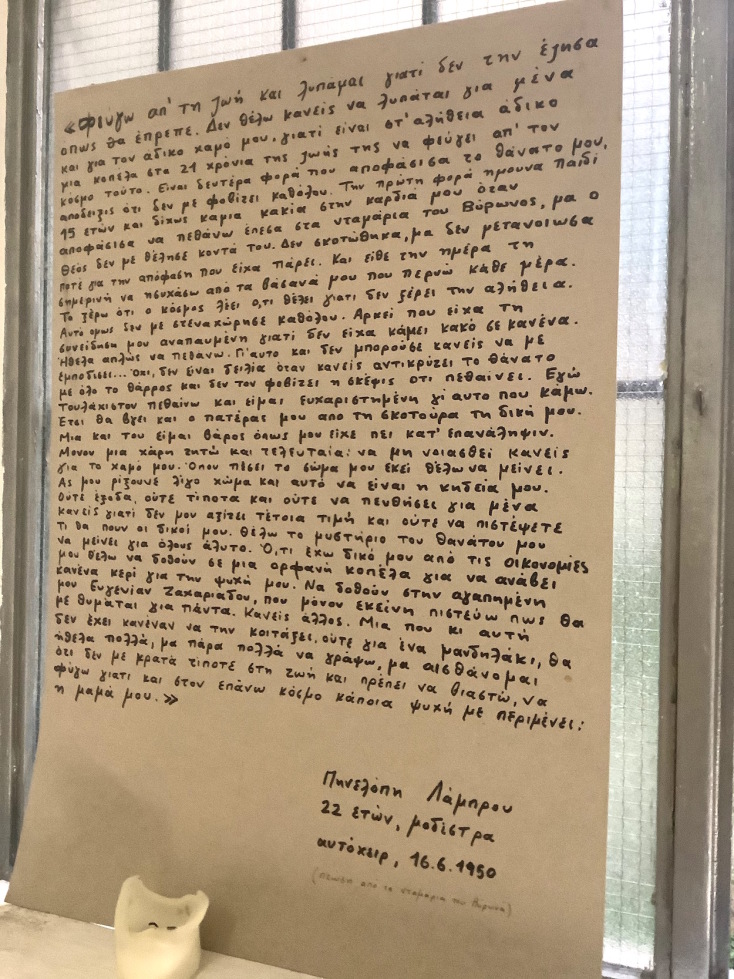 «Φεύγω απ' τη ζωή και λυπάμαι γιατί δεν την έζησα
όπως θα έπρεπε. Δεν θέλω κανείς να λυπάται για μένα
και για τον άδικο χαμό μου, γιατί είναι στ' αλήθεια άδικο
μια κοπέλα στα 21 χρόνια της ζωής της να φεύγει απ' τον
κόσμο τούτο. Είναι δευτέρα φορά που αποφάσισα το θάνατο μου,
απόδειξις ότι δεν με φοβίζει καθόλου. Την πρώτη φορά ήμουνα παιδί
15 ετών και δίχως καμιά κακία στην καρδιά μου όταν
αποφάσισα να πεθάνω έπεσα στα νταμάρια του Βύρωνος, μα ο
Θεός δεν με θέλησε κοντά του. Δεν σκοτώθηκα, μα δεν μετανοίωσα
ποτέ για την απόφαση που είχα πάρει. Και είθε την ημέρα τη
σημερινή να ησυχάσω από τα βάσανά μου που περνώ κάθε μέρα.
Το ξέρω ότι ο κόσμος λέει ο,τι θέλει γιατί δεν ξέρει την αλήθεια.
Αυτό όμως δεν με στεναχώρησε καθόλου. Αρκεί που είχα τη
συνείδηση μου αναπαυμένη γιατί δεν είχα κάμει κακό σε κανένα.
Ήθελα απλώς να πεθάνω. Γι' αυτο και δεν μπορούσε κανείς να με
εμποδίσει... Όχι, δεν είναι δειλία όταν κανείς αντικρύζει το θάνατο
με όλο το θάρρος και δεν τον φοβίζει η σκέψις οτι πεθαίνει. Εγώ
τουλάχιστον πεθαίνω και είμαι ευχαριστημένη γι' αυτο που κάμω.
Έτσι θα βγει και ο πατέρας μου απο τη σκοτούρα τη δική μου.
Μια και του είμαι βάρος όπως μου είχε πει κατ' επανάληψιν.
Μονον μια χάρη ζητώ και τελευταία: να μη νοιασθεί κανείς
για το χαμό μου. Όπου πέσει το σώμα μου εκεί θέλω να μείνει.
Ας μου ρίξουνε λίγο χώμα και αυτό να είναι η κηδεία μου.
Ούτε έξοδα, ούτε τίποτα και ούτε να πενθήσει για μένα
κανείς γιατί δεν μου αξίζει τέτοια τιμή και ούτε να πιστέψετε
τι θα πουν οι δικοί μου. Θέλω το μυστήριο του θανάτου μου
να μείνει για όλους άλυτο. Ό,τι έχω δικό μου από τις οικονομίες
μου θέλω να δοθούν σε μια ορφανή κοπέλα για να ανάβει
κανένα κερί για την ψυχή μου. Να δοθούν στην αγαπημένη
μου Ευγενίαν Ζαχαριάδου, που μόνον εκείνη πιστεύω πως θα
με θυμάται για πάντα. Κανείς άλλος. Μια που κι αυτή
δεν έχει κανέναν να την κοιτάξει, ούτε για ένα μανδηλάκι, θα
ήθελα πολλά, μα πάρα πολλά να γράψω, μα αισθάνομαι
ότι δεν με κρατά τίποτε στη ζωή και πρέπει να βιαστώ, να
φύγω γιατί και στον επάνω κόσμο κάποια ψυχή με περιμένει:
η μαμά μου.»
Πηνελόπη Λάμπρου
22 ετών, μοδίστρα
αυτόχειρ, 16.6.1950
(πτώση απο τα νταμάρια του Βύρωνα)